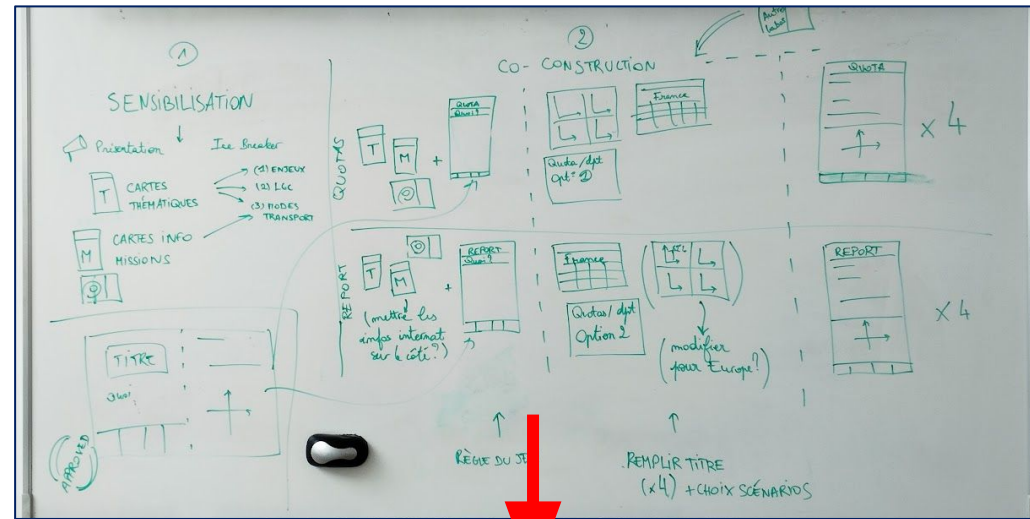 1
SENSIBILISATION
Présentation
Ice Breaker
T
CARTES
THÉMATIQUES
(1) ENJEUX
(2) LGC
(3) MODES
TRANSPORT
M
CARTES INFO
MISSIONS
TITRE
Quoi
APPROVED
2
CO-CONSTRUCTION
Autre
labos
QUOTAS
T
M
+
QUOTA
Quoi?
France
Quota/dpt
QUOTA
x 4
REPORT
T
M
(mettre les
infos internat
sur le côté?)
+
REPORT
Quoi?
France
Quotas/dpt
Option 2
(modifier
pour Europe?)
REPORT
x 4
RÈGLE DU
REMPLIR TITRE
(x4) + CHOIX SCÉNARIOS